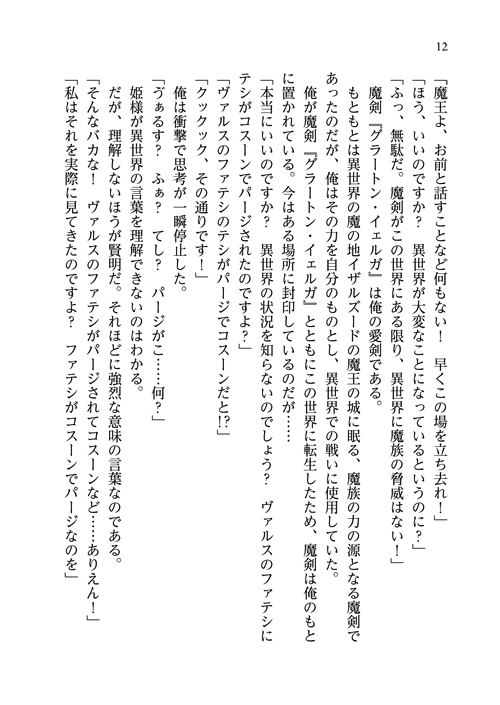 12
「魔王よ、お前と話すことなど何もない！　早くこの場を立ち去れ！」
「ほう、いいのですか？　異世界が大変なことになっているというのに？」
「ふっ、無駄だ。魔剣がこの世界にある限り、異世界に魔族の脅威はない！」
魔剣『グラートン・イェルガ』は俺の愛剣である。
もともとは異世界の魔の地イザルズードの魔王の城に眠る、魔族の力の源となる魔剣で
あったのだが、俺はその力を自分のものとし、異世界での戦いに使用していた。
俺が魔剣『グラートン・イェルガ』とともにこの世界に転生したため、魔剣は俺のもと
に置かれている。今はある場所に封印しているのだが……
「本当にいいのですか？　異世界の状況を知らないのでしょう？　ヴァルスのファテシに
テシがコスーンでパージされたのですよ？」
「ヴァルスのファテシのテシがパージでコスーンだと!?」
「クックック、その通りです！」
俺は衝撃で思考が一瞬停止した。
「ゔぁるす？　ふぁ？　てし？　パージがこ……何？」
姫様が異世界の言葉を理解できないのはわかる。
だが、理解しないほうが賢明だ。それほどに強烈な意味の言葉なのである。
「そんなバカな！　ヴァルスのファテシがパージされてコスーンなど……ありえん！」
「私はそれを実際に見てきたのですよ？　ファテシがコスーンでパージなのを」